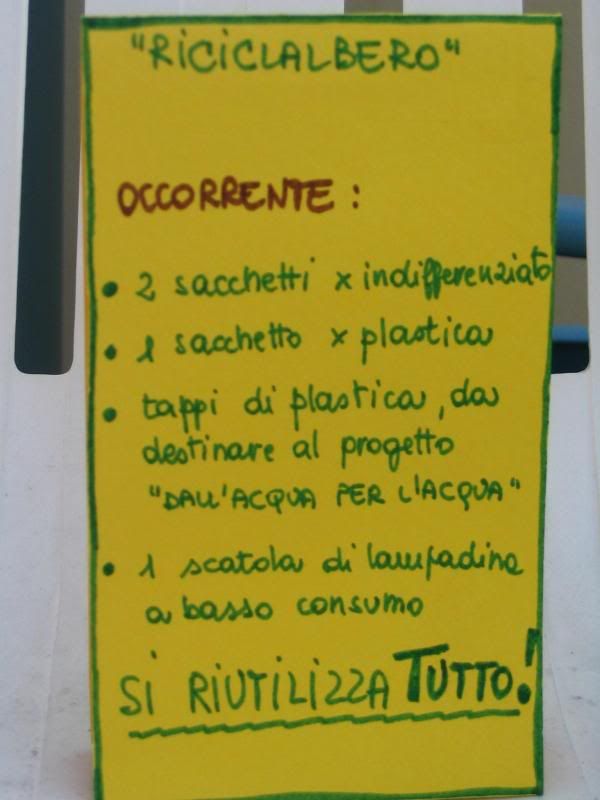 "RICICLALBERO"
OCCORRENTE:
• 2 sacchetti x indifferenziato
• 1 sacchetto x plastica
• tappi di plastica, da
destinare al progetto
"DALL'ACQUA PER L'ACQUA"
• 1 scatola di lampadine
a basso consumo
SI RIUTILIZZA TUTTO!